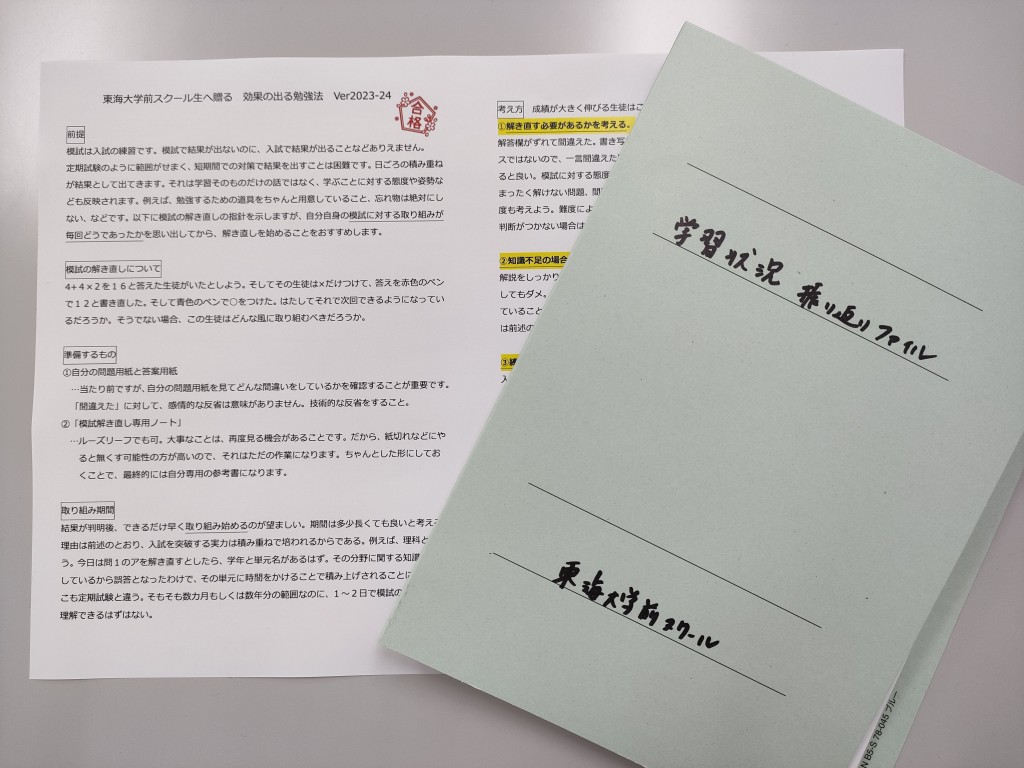 東海大学前スクール生へ贈る　効果の出る勉強法　Ver2023-24
合格
前提
模試は入試の練習です。模試で結果が出ないのに、入試で結果が出ることなどありえません。
定期試験のように範囲がせまく、短期間での対策で結果を出すことは困難です。日ごろの積み重ね
が結果として出てきます。それは学習そのものだけの話ではなく、学ぶことに対する態度や姿勢な
ども反映されます。例えば、勉強するための道具をちゃんと用意していること、忘れ物は絶対にし
ない、などです。以下に模試の解き直しの指針を示しますが、自分自身の模試に対する取り組みが
毎回どうであったかを思い出してから、解き直しを始めることをおすすめします。
模試の解き直しについて
4+4×2を16と答えた生徒がいたとしよう。そしてその生徒は×だけつけて、答えを赤色のペン
で12と書き直した。そして青色のペンで○をつけた。はたしてそれで次回できるようになってい
るだろうか。そうでない場合、この生徒はどんな風に取り組むべきだろうか。
準備するもの
①自分の問題用紙と答案用紙
…当たり前ですが、自分の問題用紙を見てどんな間違いをしているかを確認することが重要です。
「間違えた」に対して、感情的な反省は意味がありません。技術的な反省をすること。
②「模試解き直し専用ノート」
…ルーズリーフでも可。大事なことは、再度見る機会があることです。だから、紙切れなどにや
ると無くす可能性の方が高いので、それはただの作業になります。ちゃんとした形にしてお
くことで、最終的には自分専用の参考書になります。
取り組み期間
結果が判明後、できるだけ早く取り組み始めるのが望ましい。期間は多少長くても良いと考える
理由は前述のとおり、入試を突破する実力は積み重ねで培われるからである。例えば、理科と
う。今日は問1のアを解き直すとしたら、学年と単元名があるはず。その分野に関する知識
しているから誤答となったわけで、その単元に時間をかけることで積み上げされることに
こも定期試験と違う。そもそも数カ月もしくは数年分の範囲なのに、1～2日で模試の
理解できるはずはない。
考え方　成績が大きく伸びる生徒はこ
①解き直す必要があるかを考える。
解答欄がずれて間違えた。書き写
スではないので、一言間違えた
ると良い。模試に対する態度
まったく解けない問題、間
度も考えよう。難度によ
判断がつかない場合は
②知識不足の場合
解説をしっかり
してもダメ。
ていること
は前述の
③
入
学習状況 振り返りファイル
東海大学前スクール
N B5-S 78-045 ブルー